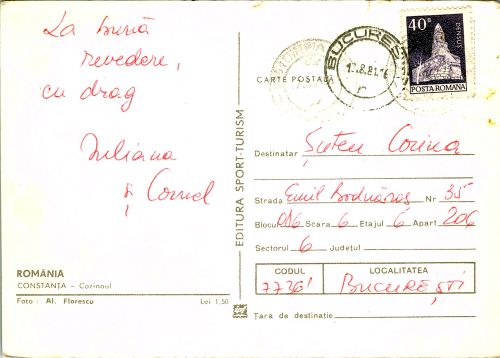 La bună
revedere,
cu drag
Iuliana
și Cornel
ROMÂNIA
CONSTANȚA – Cazinoul
Foto : Al. Florescu
Lei 1,50
EDITURA SPORT-TURISM
CARTE POSTALĂ
BUCUREȘTI
40 B
DENSUȘ
POSTA ROMANA
Destinatar Șuteu Corina
Strada Emil Bodnăraș Nr 35
Blocul Scara 6 Etajul 6 Apart 206
Sectorul 6 Județul
CODUL LOCALITATEA
77361 BUCUREȘTI
Țara de destinație